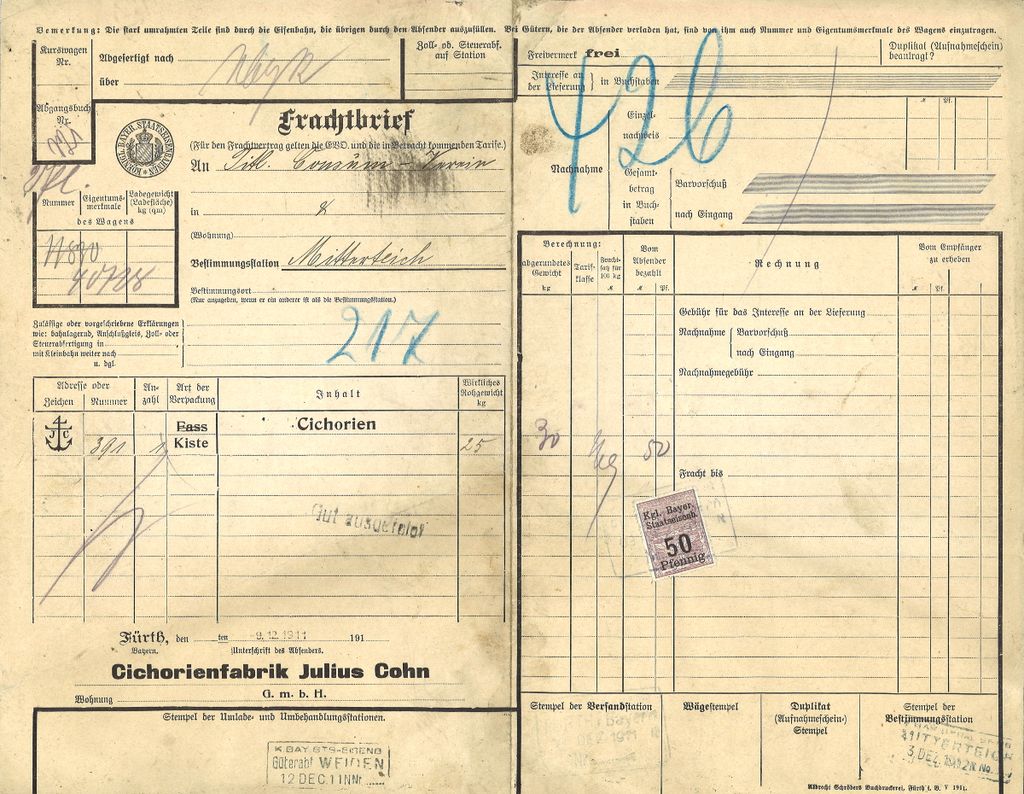 Bemerkung: Die stark umrahmten Teile sind durch die Eisenbahn, die übrigen durch den Absender auszufüllen. Bei Gütern, die der Absender verladen hat, sind von ihm auch Nummer und Eigentumsmerkmale des Wagens einzutragen.
Kurswagen
Nr.
Abgefertigt nach
über
Zoll- ob. Steuerabf.
auf Station
Abgangsbuch
Nr.
KOENIGL. BAYER. STAATSEISENBAHNEN
Frachtbrief
(Für den Frachtvertrag gelten die EVO. und die in Betracht kommenden Tarife.)
An Titl. Consum-Verein
in
(Wohnung)
Bestimmungsstation Mitterteich
Bestimmungsort
(Nur anzugeben, wenn er ein anderer ist als die Bestimmungsstation.)
Nummer
Eigentums-
merkmale
Ladegewicht
(Ladefläche)
kg (qm)
des Wagens
11890
40728
Zulässige oder vorgeschriebene Erklärungen
wie: bahnlagernd, Anschlußgleis, Zoll- oder
Steuerabfertigung in
mit Kleinbahn weiter nach
u. dgl.
217
Adresse oder
Zeichen
Nummer
An-
zahl
Art der
Verpackung
Inhalt
Wirkliches
Rohgewicht
kg
J C
391
1
Fass
Kiste
Cichorien
25
Gut ausgefolgt
Fürth, den ten -9.12.1911 191
Bayern.
Unterschrift des Absenders.
Cichorienfabrik Julius Cohn
G. m. b. H.
Wohnung
Stempel der Umlade- und Umbehandlungsstationen.
K.BAY.STS-EISENB
Güterabf WEIDEN
12 DEC. 11 Nr
Freivermerk frei
Duplikat (Aufnahmeschein)
beantragt?
Interesse an
der Lieferung
in Buchstaben
426
Nachnahme
Einzel-
nachweis
M Pf.
Gesamt-
betrag
in Buch-
staben
Barvorschuß
nach Eingang
Berechnung:
abgerundetes
Gewicht
kg
Tarif-
klasse
Fracht-
satz für
100 kg
M
Vom
Absender
bezahlt
M Pf.
Rechnung
Vom Empfänger
zu erheben
M Pf.
Gebühr für das Interesse an der Lieferung
Nachnahme
Barvorschuß
nach Eingang
Nachnahmegebühr
30
50
Fracht bis
Kgl. Bayer.
Staatseisenb.
50
Pfennig
Stempel der Versandstation
Wägestempel
Duplikat
(Aufnahmeschein-)
Stempel
Stempel der
Bestimmungsstation
MITTERTEICH
Albrecht Schröders Buchdruckerei, Fürth i. B. V 1911.